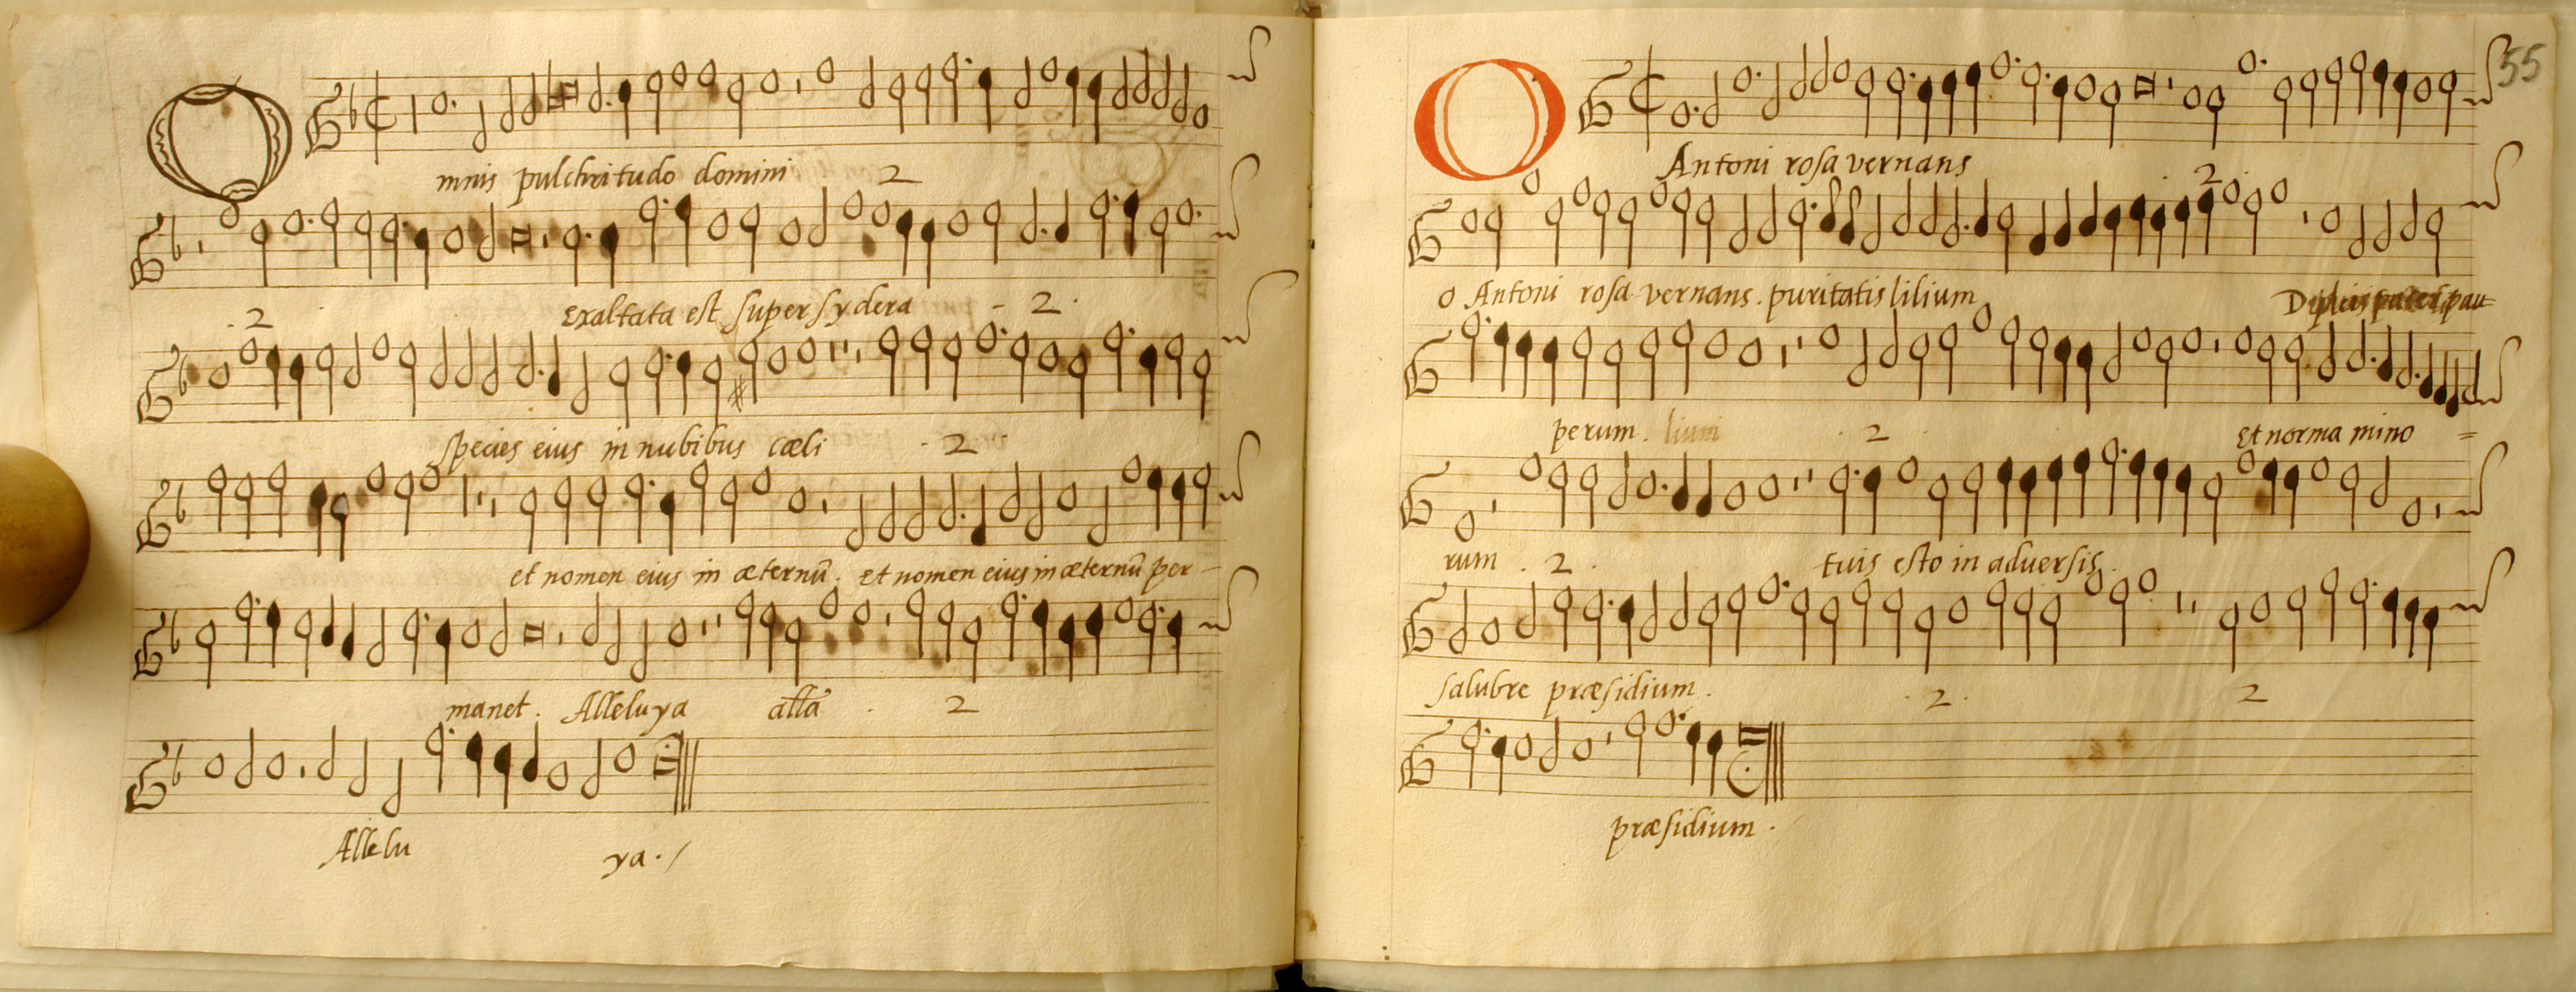 Omnis pulchritudo domini 2
2 Exaltata est super sydera 2
species eius in nubibus cæli 2
et nomen eius in æternū. et nomen eius in æternū per-
manet. Alleluya alla 2
Allelu ya.
55
O Antoni rosa vernans 2
O Antoni rosa vernans. puritatis lilium pau-
perum. lium 2 et norma mino=
rum. 2. tuis esto in adversis.
salubre præsidium. 2. 2
præsidium.